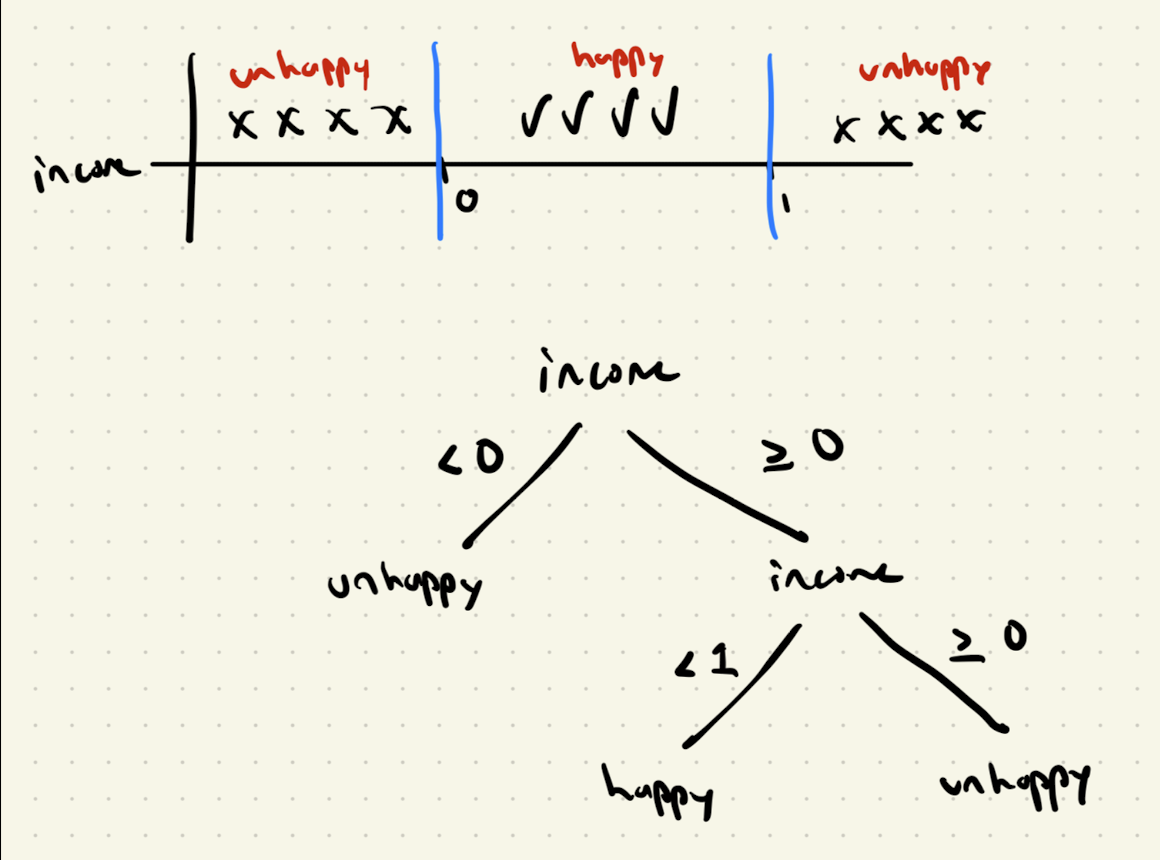 unhappy happy unhappy
x x x x ✓ ✓ ✓ ✓ x x x x
income
0 1
income
< 0 ≥ 0
unhappy income
< 1 ≥ 0
happy unhappy